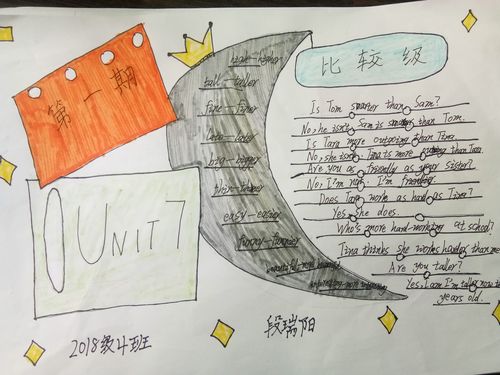 第一期
UNIT 7
high—higher
tall—taller
fine—finer
late—later
big—bigger
thin—thinner
easy—easier
funny—funnier
比较级
Is Tom smarter than Sam?
No, he isn't. Sam is smarter than Tom.
Is Tara more outgoing than Tina?
No, she isn't. Tina is more outgoing than Tara.
Are you as friendly as your sister?
No, I'm not. I'm friendlier.
Does Tara work as hard as Tina?
Yes, she does.
Who's more hard-working at school?
Tina thinks she works harder than me.
Are you taller?
Yes, I am. I'm taller now
years old.
2018级4班
段瑞阳